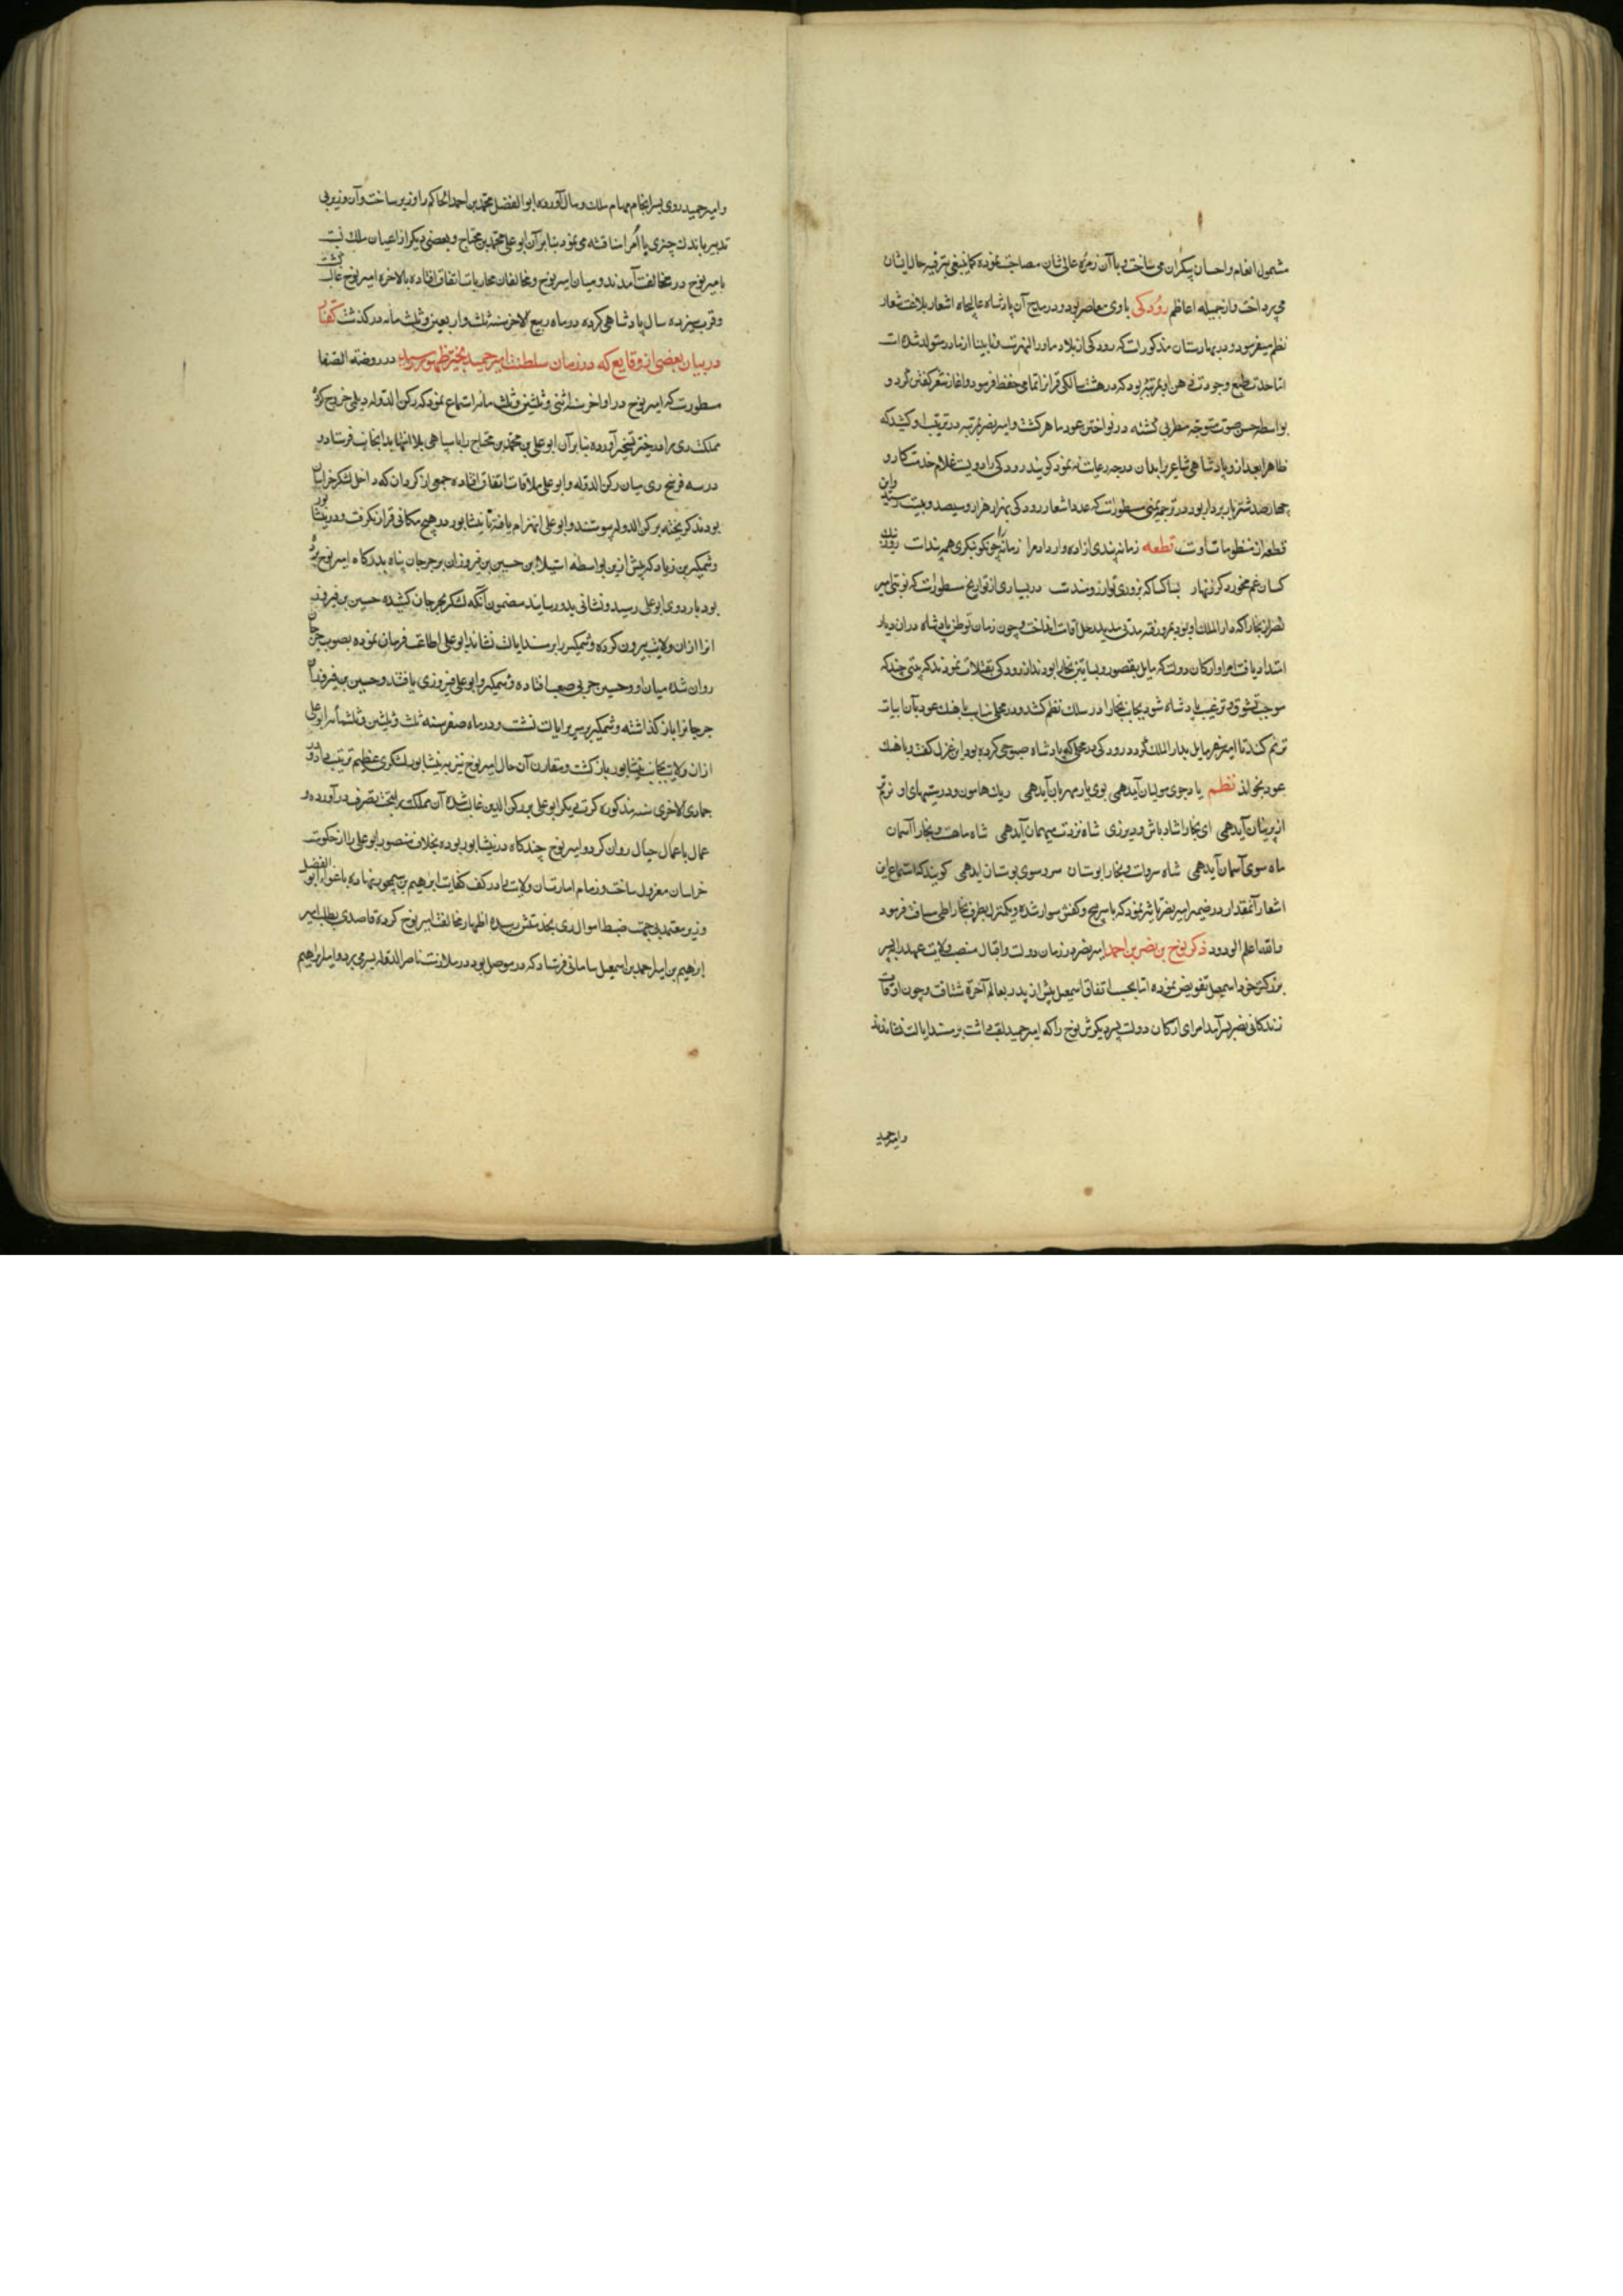 مشمول انعام و احسان بیکران می‌ساخت و با آن زمره عالی شان مصاحبت نموده کماینبغی بترفیه حال ایشان
می‌پرداخت و از جمیله اعاظم رودکی با وی معاصر بود و در مدح آن پادشاه عالیجاه اشعار بلاغت شعار
نظم میفرمود و در بهارستان مذکور است که رودکی از بلاد ماوراء النهر است و نابینا از مادر متولد شده است
اما حدت طبع و جودت ذهن او بمرتبه بود که در هشت سالگی قرآن را تمامی حفظ فرمود و اغاز شعر گفتن کرد و
بواسطه حسن صوت متوجه مطربی گشته در نواختن عود ماهر گشت و امیر نصر بمرتبه در تربیت او کوشید که
ظاهرا بعد از و پادشاهی شاعر را بدان درجه رعایت ننمود گویند رودکی را دویست غلام خدمتکار و
چهارصد شتر باربردار بود در ترجمه یمینی مسطور است که عدد اشعار رودکی بهزار هزار و سیصد و بیت رسید و این
قطعه از منظومات اوست قطعه زمانه پندی ازاده وار داد مرا زمانه را چو نکو بنگری همه پندات بروز نیک
کسان غم مخور که زنهار بسا کسا که بروزی تو ارزومندست در بسیاری از تواریخ مسطور است که نوبتی امیر
نصر از بخارا که دار الملک او بود بمرو رفته مدتی مدید رحل اقامت انداخت و چون زمان توطن پادشاه دران دیار
امتداد یافت امرا و ارکان دولت که مایل بقصور و بساتین بخارا بودند از رودکی تقبلات نمودند که بیتی چند که
موجب تشوق و ترغیب پادشاه شود بجانب بخارا در سلک نظم کشد و در محلی مناسب باهنک عود بآن ابیات
ترنم کند تا امیر نصر مایل بدار الملک گردد رودکی در محلی که پادشاه صبوحی کرده بود این غزل گفت و باهنک
عود بخواند نظم یاد جوی مولیان آید همی بوی یار مهربان آید همی ریک هامون و درشتیهای او نرم‌تر
از پرنیان آید همی ای بخارا شاد باش و دیر زی شاه نزدت میهمان آید همی شاه ماهست و بخارا آسمان
ماه سوی آسمان آید همی شاه سروات و بخارا بوستان سرو سوی بوستان ایدهمی گویند که استماع این
اشعار آنمقدار در ضمیر امیر نصر تاثیر نمود که با سرپیچ و کفش سوار شده و یکمنزل بطرف بخارا طی مسافت فرمود
والله اعلم الودود ذکر نوح بن نصر بن احمد امیر نصر در زمان دولت و اقبال منصب ولایت عهد را بپسر
بزرکتر خود اسمعیل تفویض نموده اما بحسب اتفاق اسمعیل پیش از پدر بعالم آخرة شتافت و چون اوقات
زندکانی نصر بسر آمد امرای ارکان دولت پسر دیکرش نوح را که امیر حمید لقب داشت بر مسند ایالت نشاندند
و امیر حمید
و امیر حمید روی بسرانجام مهام ملک و مال آورده ابو الفضل محمد بن احمد الحاکم را وزیر ساخت و آن وزیر بی
تدبیر باندک چیزی با امرا مناقشه می نمود بنا بر آن ابو علی محمد بن محتاج و بعضی دیکر از اعیان ملک نسبت
بامیر نوح در مخالفت آمدند و میان امیر نوح و مخالفان محاربات اتفاق افتاده بالاخره امیر نوح غالب گشت
و قرب سیزده سال پادشاهی کرده در ماه ربیع الاخر سنه ثلث و اربعین و ثلث مائه درگذشت
در بیان بعضی از وقایع که در زمان سلطنت امیر حمید بحیز ظهور رسید در روضة الصفا
مسطورست که امیر نوح در اواخر سنه اثنی و ثلثین و ثلث مائه استماع نمود که رکن الدوله دیلمی خروج کرده
مملکت ری را در حیز تسخیر آورده بنا بر آن ابو علی بن محمد بن محتاج را با سپاهی بلا انتها بدانجانب فرستاد و
در سه فرسخ ری میان رکن الدوله و ابو علی ملاقات اتفاق افتاده جمعی از کردان که داخل لشکر خراسان
بودند گریخته برکن الدوله پیوستند و ابو علی انهزام یافته تا نیشابور در هیچ مکانی قرار نکرفت و در نیشابور
وشمکیر بن زیاد که پیش ازین بواسطه استیلا بن حسین بن فیروزان بر جرجان پناه بدرکاه امیر نوح برده
بود باردوی ابو علی رسید و نشانی بدو رسانید مضمون آنکه لشکر بجرجان کشیده حسین بن فیروزان
را ازان ولایت بیرون کرده وشمکیر را بر مسند ایالت نشاند ابو علی اطاعت فرمان نموده بصوب جرجان
روان شده میان او و حسین حربی صعب افتاده وشمکیر و ابو علی فیروزی یافتند و حسین بن فیروزان
جرجانرا باز گذاشته وشمکیر بر سریر ایالت نشست و در ماه صفر سنه ثلث و ثلثین و ثلثمائه ابو علی
ازان ولایت بجانب نیشابور بازگشت و مقارن آن حال امیر نوح نیز به نیشابور لشکری عظیم ترتیب داد و در
جمادی الاخری سنه مذکوره کرت دیکر ابو علی بر رکن الدین غالب شده آن مملکت را بتحت تصرف درآورده و
عمال باعمال جبال روان کرد و امیر نوح چندکاه در نیشابور بوده بخلاف منصور ابو علی را از حکومت
خراسان معزول ساخت و زمام امارت ان ولایت در کف کفایت ابرهیم بن سیمجور نهاده باغواء ابو الفضل
وزیر معتمدی جهت ضبط اموال ری بخدمتش رسیده اظهار مخالفت امیر نوح کرده قاصدی بطلب امیر
ابرهیم بن امیر احمد بن اسمعیل سامانی فرستاد که در موصل بود در ملازمت ناصر الدوله بسر می‌برد و امیر ابرهیم